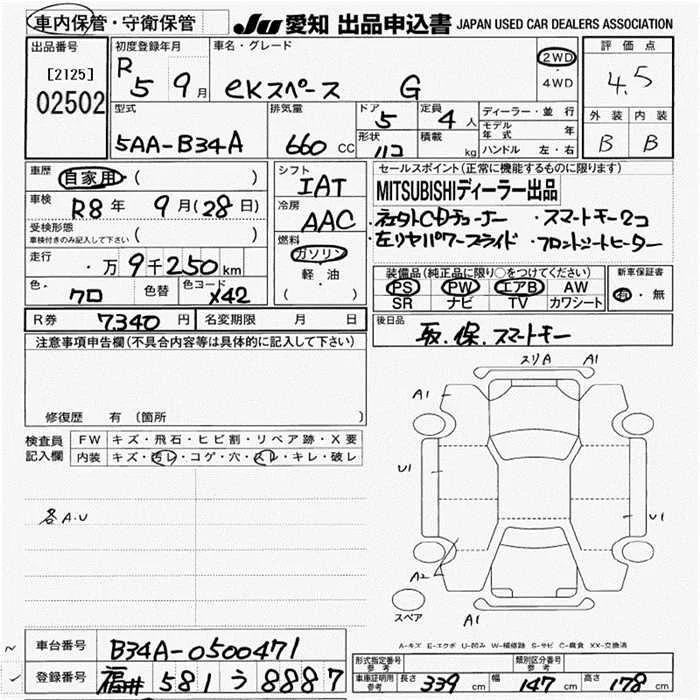 車内保管・守衛保管 JU 愛知 出品申込書 JAPAN USED CAR DEALERS ASSOCIATION
出品番号 初度登録年月 車名・グレード 評価点
[2125] R 5 9月 eKスペース G 2WD 4WD 4.5
02502
型式 排気量 ドア 定員 ディーラー・並行 外装 内装
5AA-B34A 660 CC 5 4人 モデル年式 年 B B
形状 積載 ハコ kg ハンドル 左・右
車歴 自家用・( ) シフト IAT セールスポイント(正常に機能するものに限ります)
車検 R8年 9月(28日) 冷房 AAC MITSUBISHIディーラー出品
受検形態 ( ) ・社外CDチューナー ・スマートキー2コ
車検付きのみ記入して下さい 燃料 ガソリン 左リヤパワースライド ・フロントシートヒーター
走行 ・万9千250km 軽・油
装備品(純正品に限り○をつけてください) 新車保証書
色・クロ 色替 色コード X42 ( ) PS PW エアB AW 有・無
SR ナビ TV カワシート
R券 7,340円 名変期限 月 日 後日品
取.保.スマートキー
注意事項申告欄(不具合内容等は具体的に記入して下さい)
スリA A1
A1
修復歴 有 (箇所 )
検査員記入欄 FW キズ・飛石・ヒビ割・リペア跡・X要
内装 キズ・汚レ・コゲ・穴・スレ・キレ・破レ
U1
各A.U
U1
A2
スペア A1
A-キズ E-エクボ U-凹み W-補修跡 S-サビ C-腐食 XX-交換済
車台番号 B34A-0500471
登録番号 福井 581 う 8887
形式指定番号 参考 類別区分番号 参考
車庫証明用 参考 長さ 339cm 幅 147cm 高さ 178cm